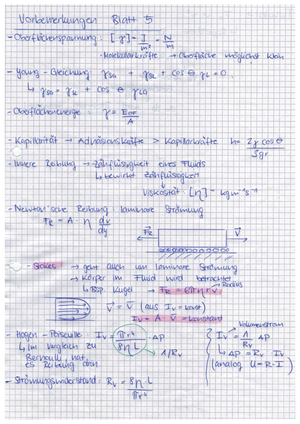 Vorbemerkungen Blatt 5
- Oberflächenspannung: [γ] = J/m² = N/m
· Molekularkräfte → Oberfläche möglichst klein
- Young-Gleichung γSG + γSL + cos θ γL = 0
↳ γSG = γSL + cos θ γLG
- Oberflächenenergie: γ = EOF/A
- Kapillarität → Adhäsionskräfte > Kapillarkräfte h = 2γ cos θ/ρgr
- Innere Reibung → Zähflüssigkeit eines Fluids
↳ bewirkt Zähflüssigkeit
Viskosität [η] = kg m⁻¹s⁻¹
- Newton'sche Reibung laminare Strömung
FR = A · η dv/dy
FR v
- Stokes → geht auch um laminare Strömung
→ Körper im Fluid wird betrachtet
↳ Bsp. Kugel → FR = 6πηrv Radius
V = V (aus IV = konst)
IV = A V = konstant
- Hagen-Poiseuille IV = πr⁴/8ηL ΔP
↳ Im Vergleich zu
Bernoulli, hat
es Reibung drin
→ 1/RV
Volumenstrom
IV = A/RV ΔP
↳ ΔP = RV IV
(analog U = R·I)
- Strömungswiderstand: RV = 8ηL/πr⁴